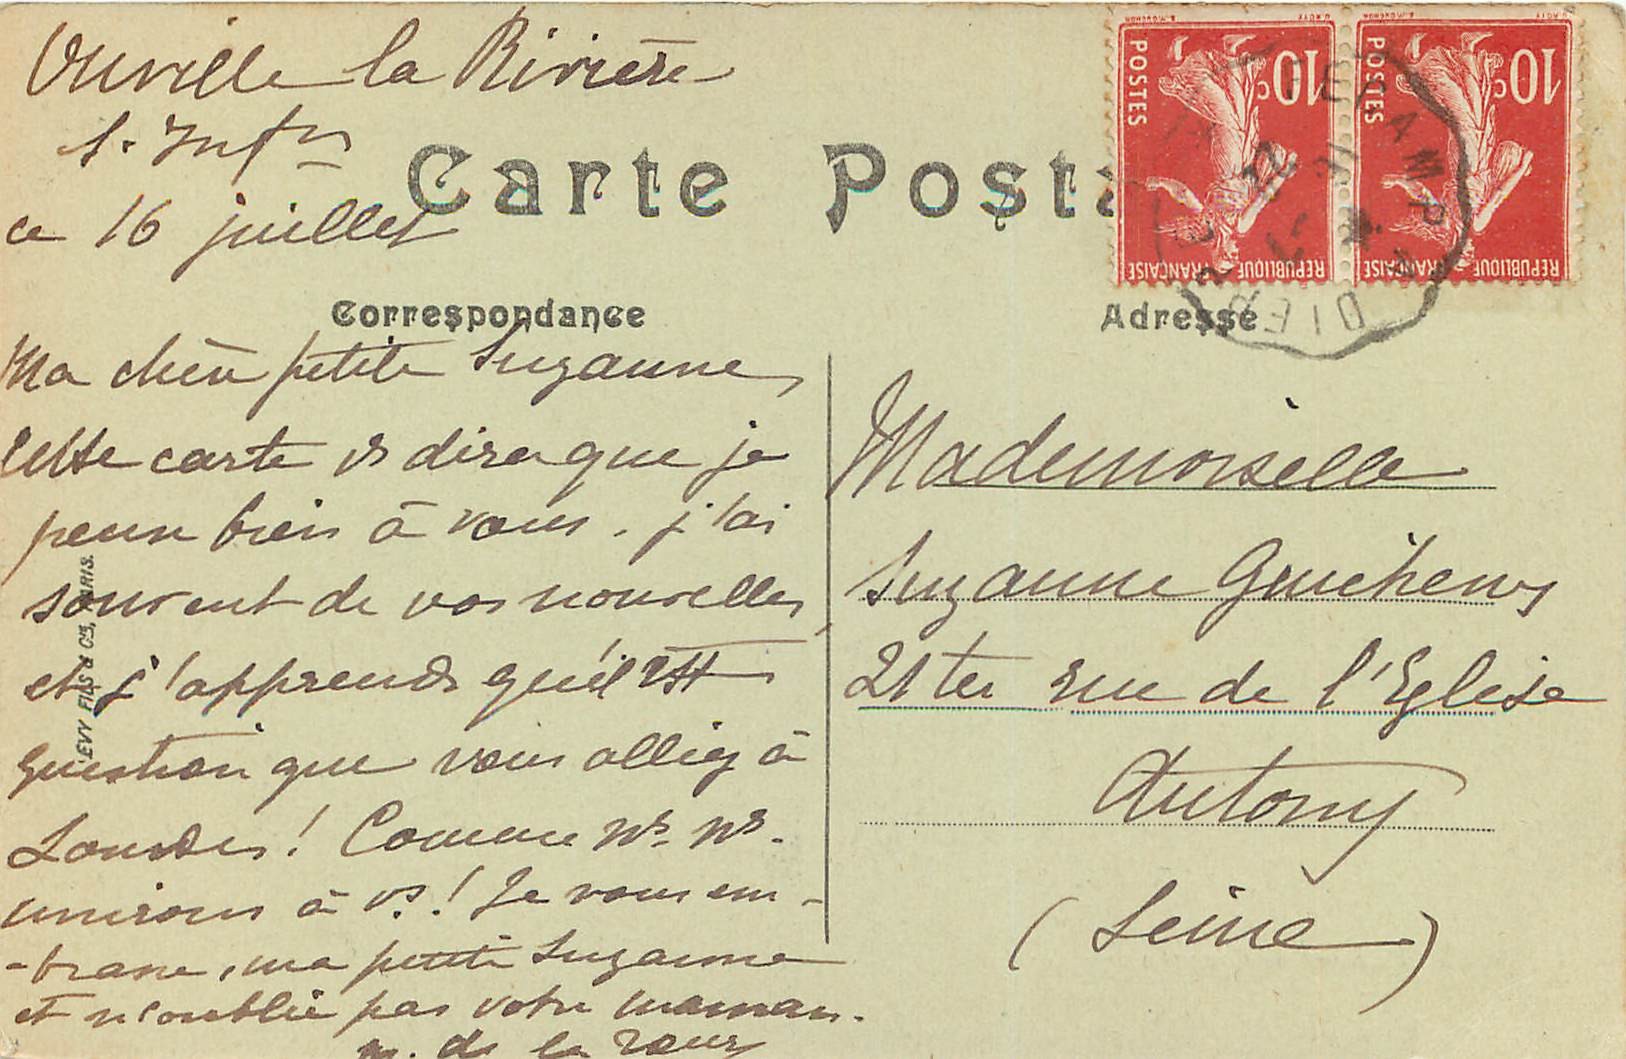 Ouville la Rivière
S. Infre
ce 16 juillet
Carte Posta
Correspondance
Adresse
Ma chère petite Suzanne,
Cette carte vs dira que je
pense bien à vous. j'ai
souvent de vos nouvelles,
et j'apprends qu'il est
question que vous alliez à
Lourdes! Comme ns ns
unirons à vs! Je vous em-
-brasse, ma petite Suzanne
et n'oublie pas votre maman.
M. de la
Mademoiselle
Suzanne
21 ter rue de l'Eglise
Antony
(Seine)
LEVY FILS & Cie, PARIS.
10c
POSTES
REPUBLIQUE FRANÇAISE
10c
POSTES
REPUBLIQUE FRANÇAISE